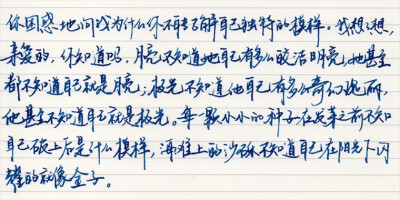 你困惑地问我为什么你不能了解自己独特的模样。我想了想,
亲爱的,你知道吗,月亮不知道她自己有多么皎洁明亮,她甚至
都不知道自己就是月亮;极光不知道他自己有多么奇幻瑰丽,
他甚至不知道自己就是极光。每一颗小小的种子在发芽之前不知
自己破土后是什么模样,海滩上的沙砾不知道自己在阳光下闪
耀的就像金子。